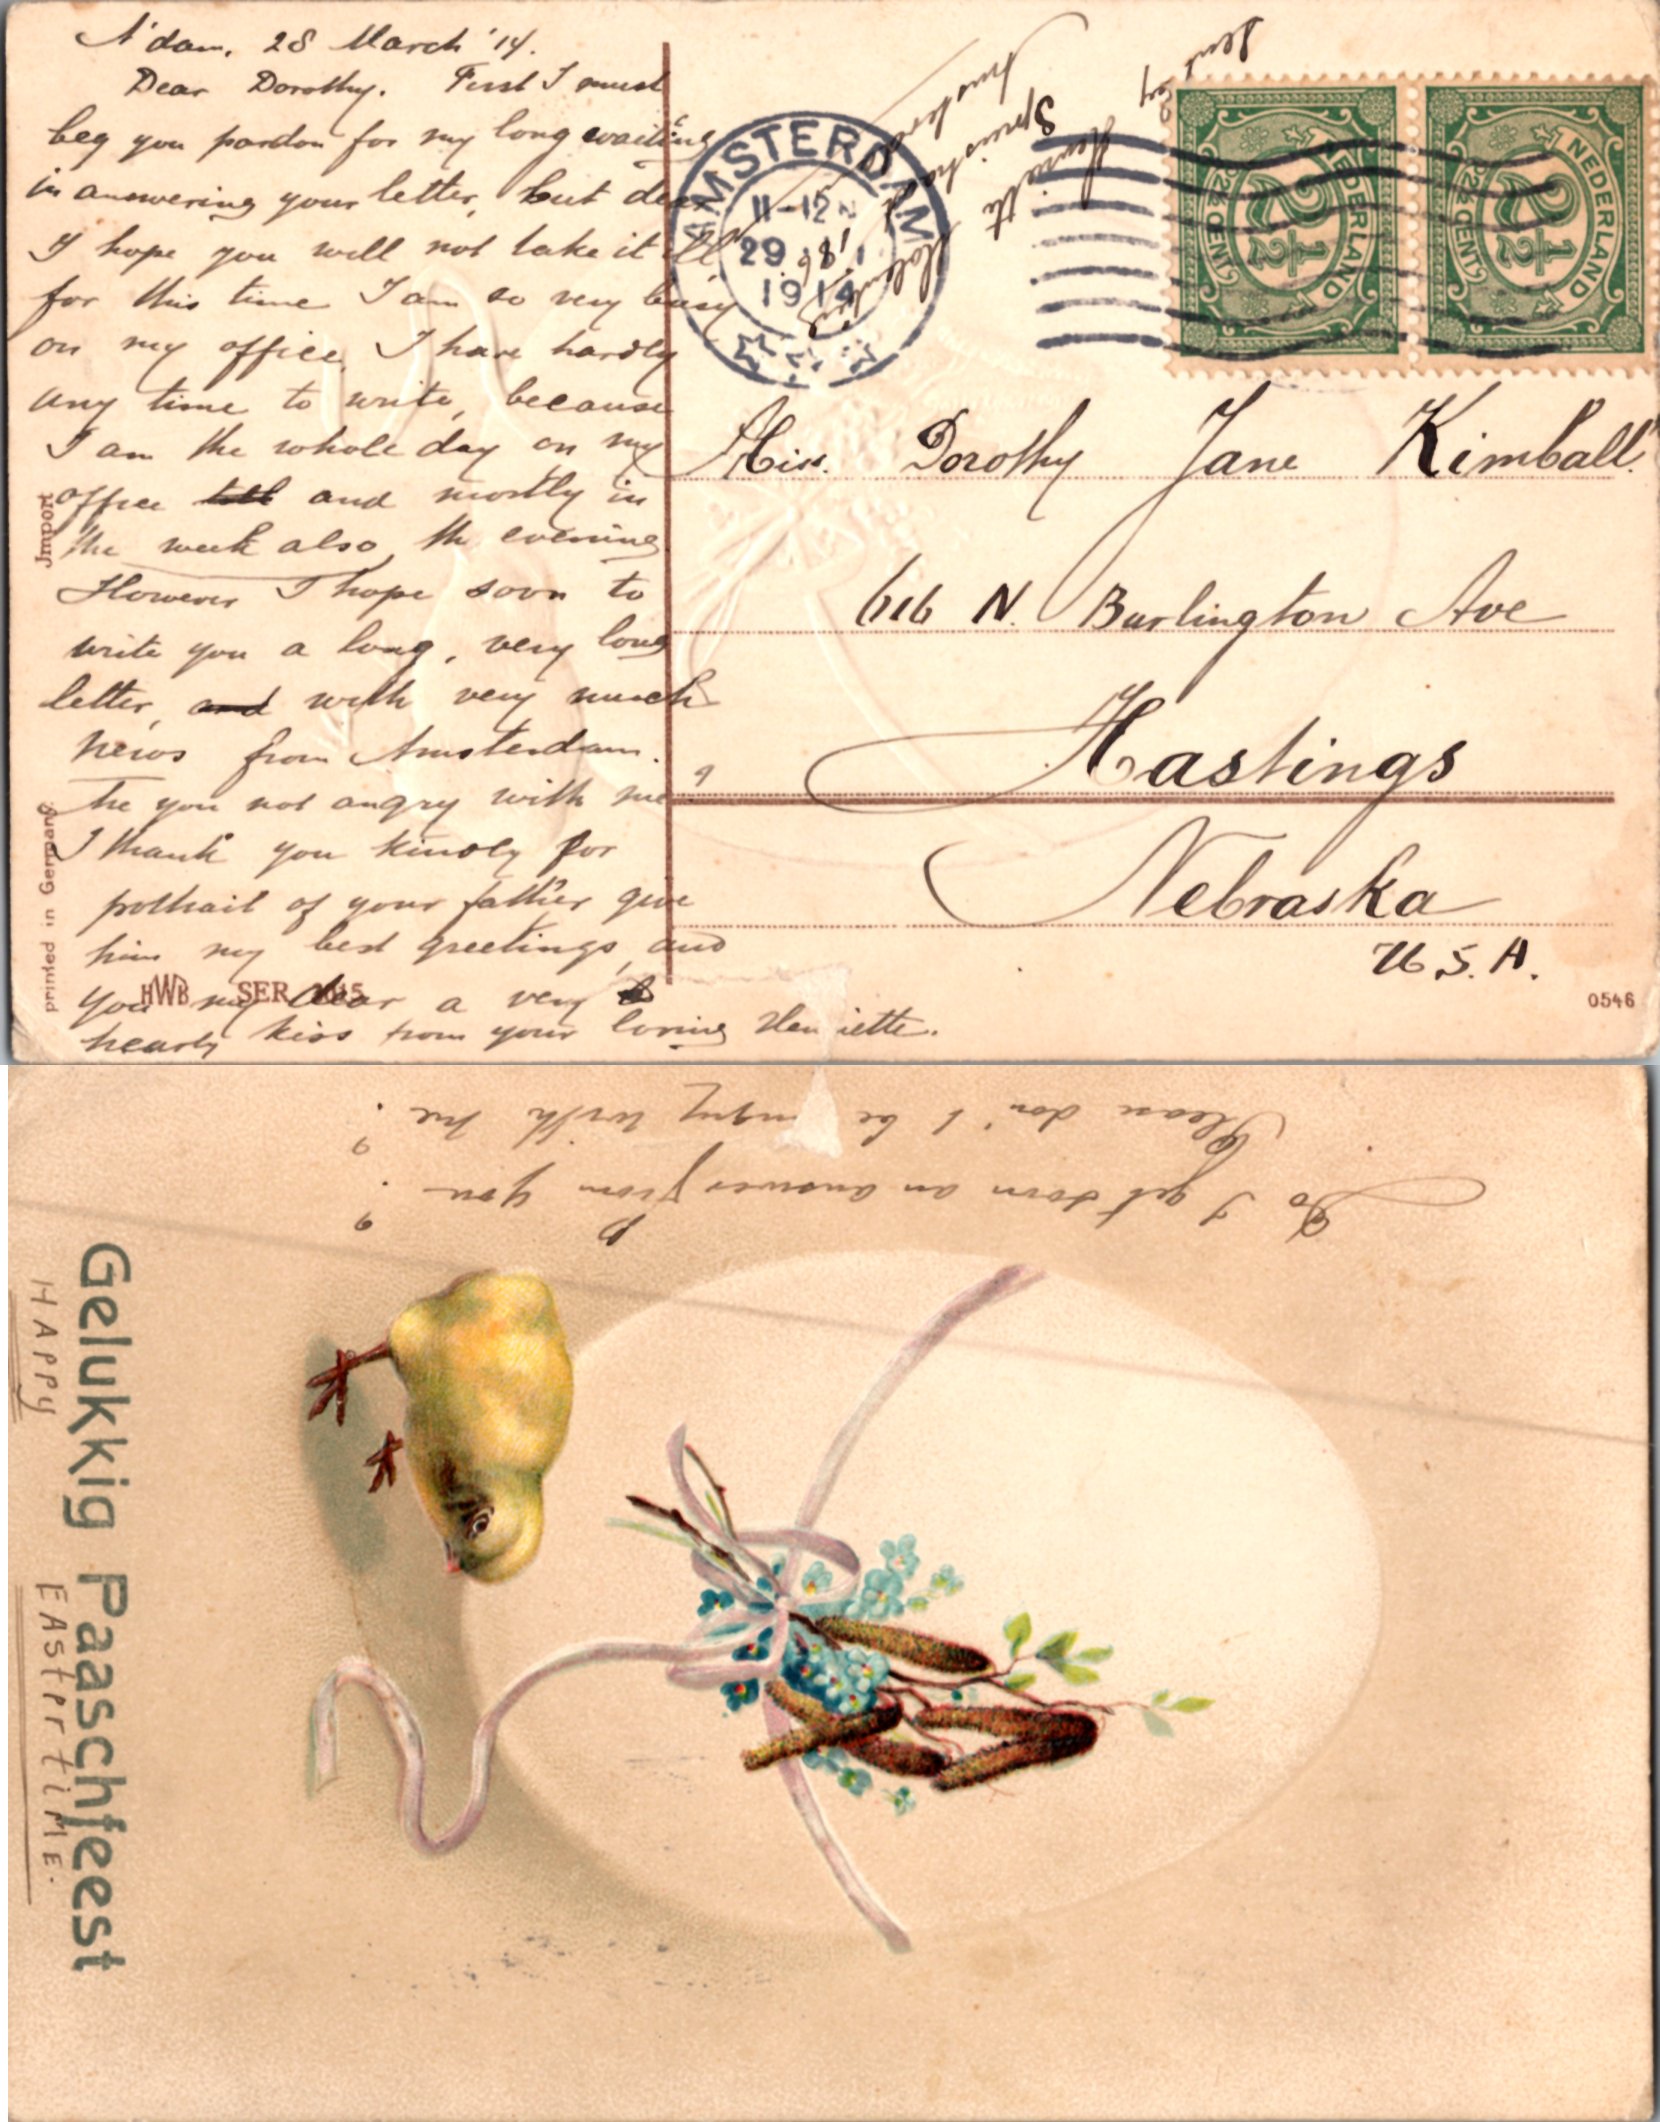 A'dam, 28 March '14.
Dear Dorothy. First I must
beg you pardon for my long waiting
in answering your letter, but dear
I hope you will not take it ill
for this time I am so very busy
on my office, I have hardly
any time to write, because
I am the whole day on my
office and mostly in
the week also, the evening
However I hope soon to
write you a long, very long
letter, and with very much
news from Amsterdam.
be you not angry with me?
I thank you kindly for
pothait of your father give
him my best greetings, and
you my dear a very
hearty kiss from your loving Henriette.
Import
printed in Germany
HWB SER
0546
AMSTERDAM
11-12 N
29
1914
Henriette
Amsterdam
NEDERLAND
2½
2½ CENT
NEDERLAND
2½
2½ CENT
Miss. Dorothy Jane Kimball.
616 N. Burlington Ave
Hastings
Nebraska
U.S.A.
Please don't be angry with me?
Do I get soon an answer from you?
Gelukkig Paaschfeest
HAPPY EASTERTIME.